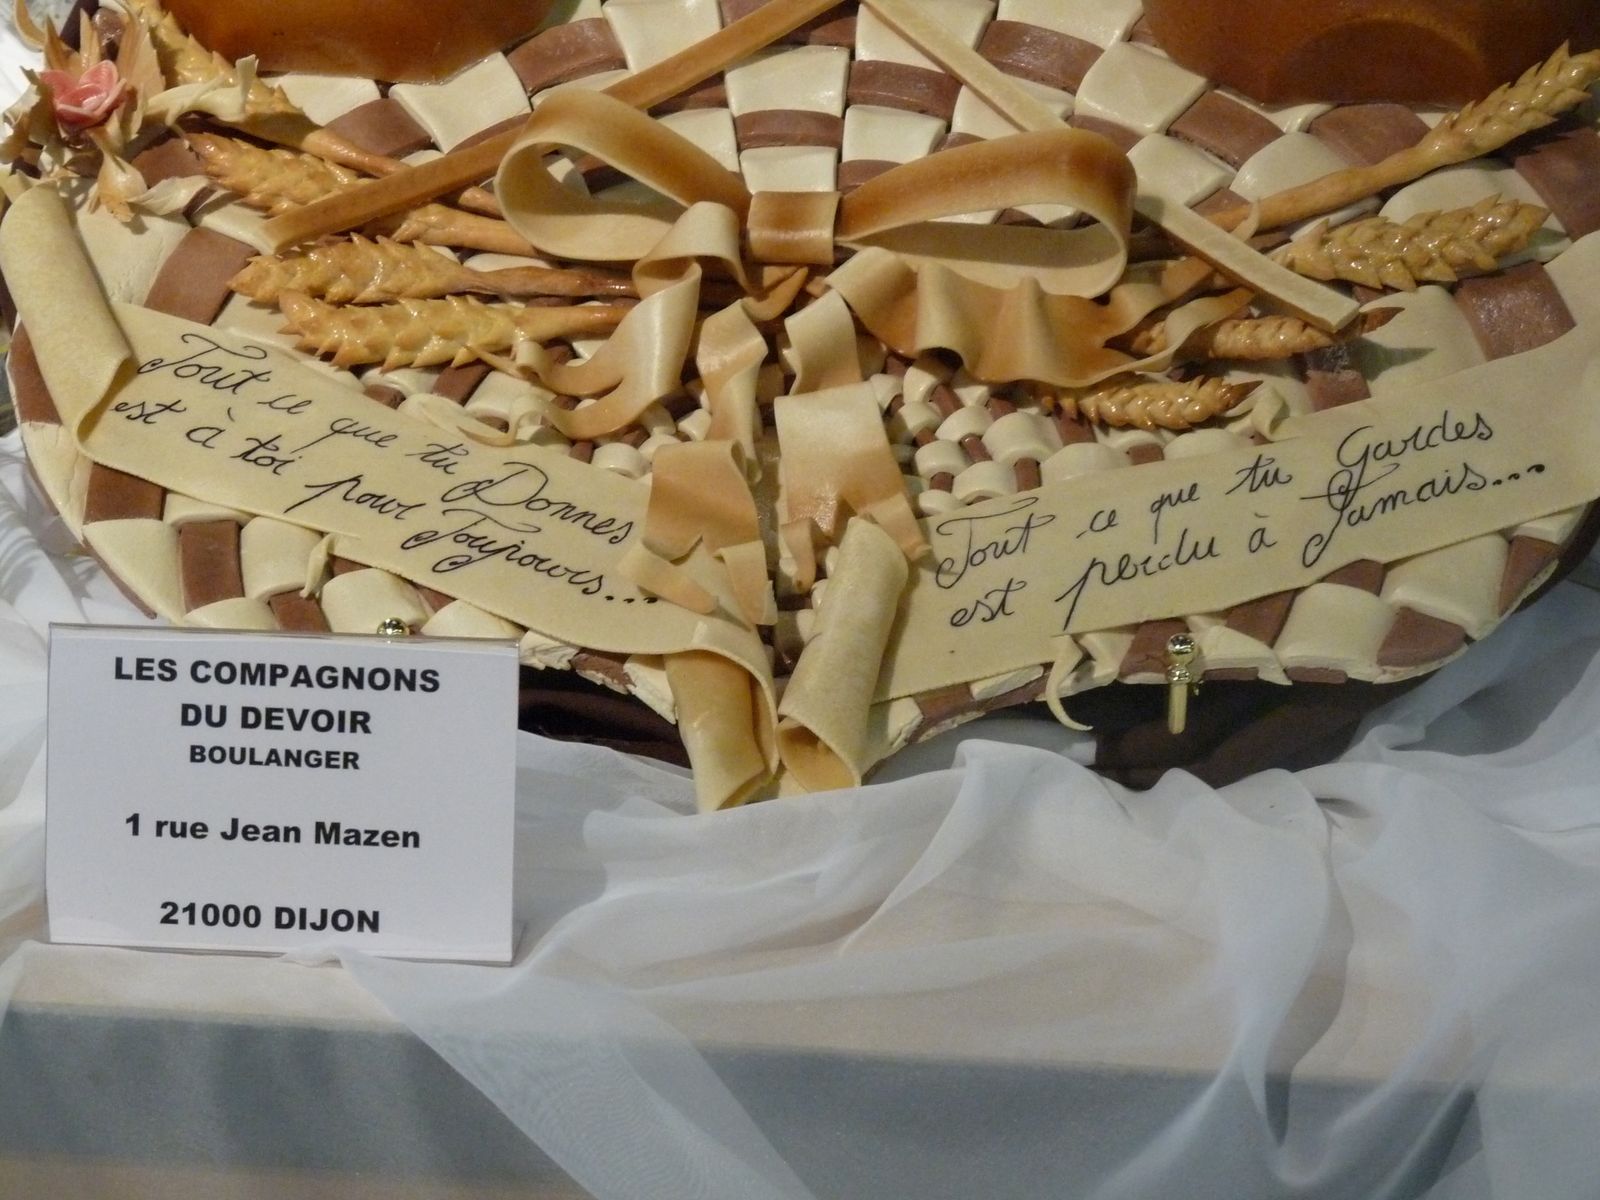 Tout ce que tu Donnes
est à toi pour Toujours...
Tout ce que tu Gardes
est perdu à Jamais...
LES COMPAGNONS
DU DEVOIR
BOULANGER
1 rue Jean Mazen
21000 DIJON